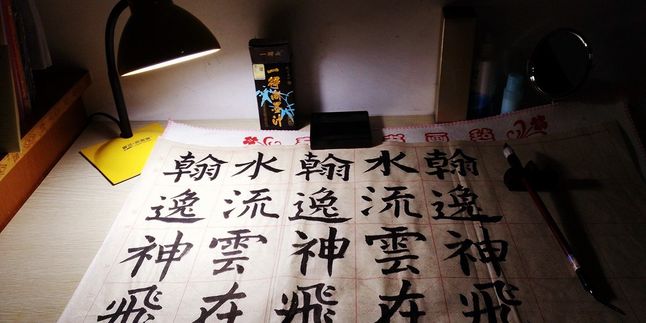 翰逸神飛
水流雲在
翰逸神飛
水流雲在
翰逸神飛
一得阁墨汁